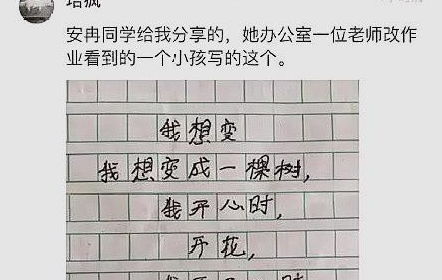 安冉同学给我分享的，她办公室一位老师改作
业看到的一个小孩写的这个。
我想变
我想变成一棵树，
我开心时，
开花，